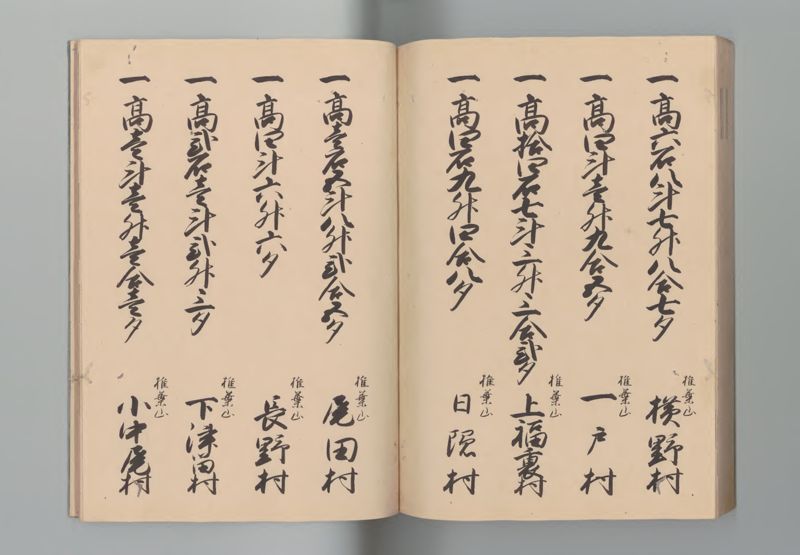 一 高六石八斗七升八合七夕
椎葉山
横野村
一 高四斗壱升九合五夕
椎葉山
一戸村
一 高拾四石七斗三升三合弐夕
椎葉山
上福裏村
一 高四石九升四合八夕
椎葉山
日隠村
一 高壱石五斗八升弐合五夕
椎葉山
尾田村
一 高四斗六升六夕
椎葉山
長野村
一 高弐石壱斗弐升三夕
椎葉山
下津田村
一 高壱斗壱升壱合壱夕
椎葉山
小中尾村